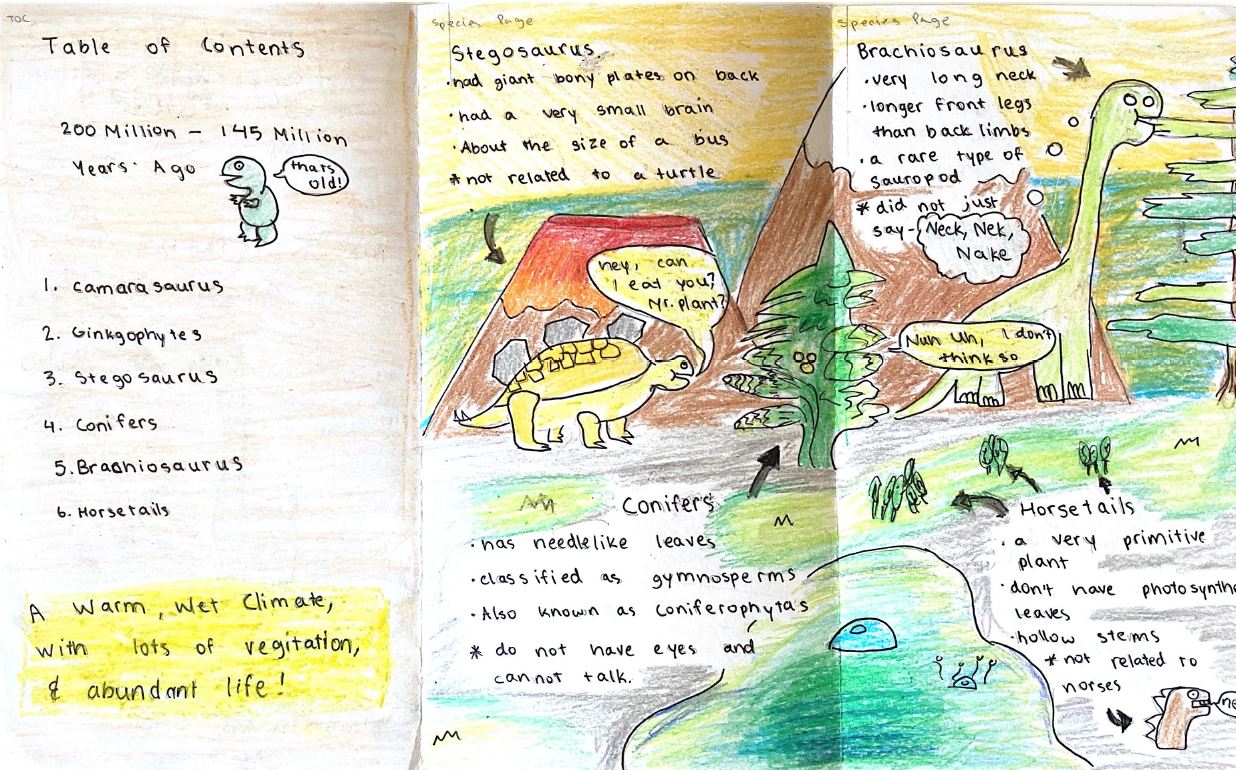 TOC
Table of Contents
200 Million - 145 Million
Years Ago
thats
old!
1. Camarasaurus
2. Ginkgophytes
3. Stegosaurus
4. Conifers
5. Brachiosaurus
6. Horsetails
A Warm, Wet Climate,
with lots of vegitation,
& abundant life!
Species Page
Stegosaurus
·had giant bony plates on back
·had a very small brain
·About the size of a bus
*not related to a turtle
hey, can
I eat you?
Mr. plant?
Conifers
·has needlelike leaves
·classified as gymnosperms
·Also known as Coniferophytas
* do not have eyes and
cannot talk.
Species Page
Brachiosaurus
·very long neck
·longer front legs
than back limbs
·a rare type of
sauropod
* did not just
say-
Neck, Nek,
Nake
Nuh Uh, I don't
think so
Horsetails
·a very primitive
plant
·don't have photosynthe
leaves
·hollow stems
*not related to
horses
ne